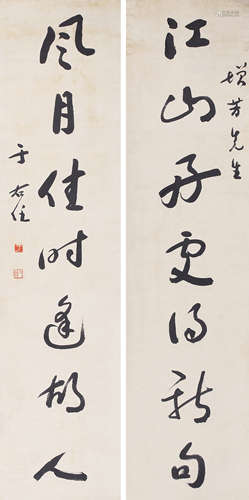 增芳先生
江山存更得新句
风月佳时逢故人
于右任